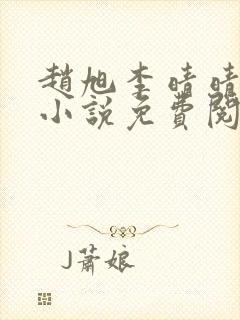 趙旭李晴晴
小說免費閱
J蕭娘